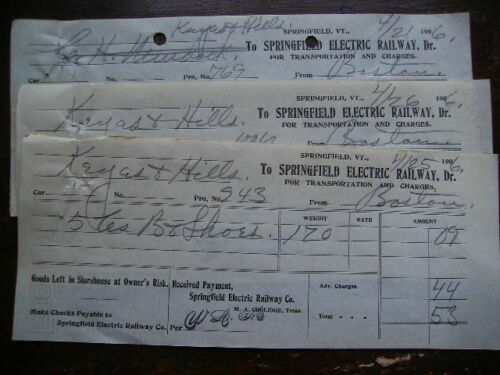 Keyas & Hills.
SPRINGFIELD, VT., 4/21 1906.
To SPRINGFIELD ELECTRIC RAILWAY, Dr.
FOR TRANSPORTATION AND CHARGES.
Car No. Pro. No. 769 From Boston
SPRINGFIELD, VT., 4/26 190
Keyas & Hills. To SPRINGFIELD ELECTRIC RAILWAY, Dr.
FOR TRANSPORTATION AND CHARGES.
From Boston
SPRINGFIELD, VT., 4/25 1906.
Keyas & Hills. To SPRINGFIELD ELECTRIC RAILWAY, Dr.
FOR TRANSPORTATION AND CHARGES.
Car No. Pro. No. 943 From Boston
WEIGHT RATE AMOUNT
5 Cs B & Shoes. 170 09
Goods Left in Storehouse at Owner's Risk. Received Payment, Adv. Charges 44
Springfield Electric Railway Co.
M. A. COOLIDGE, Treas. Total 53
Make Checks Payable to
Springfield Electric Railway Co. Per